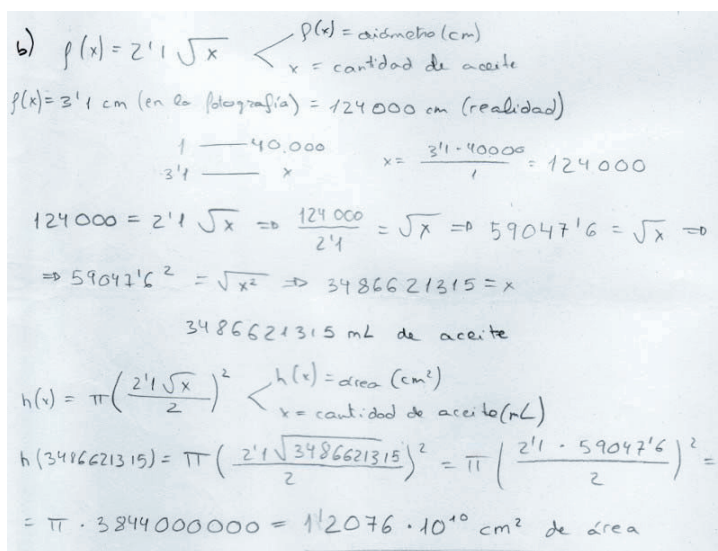 b) f(x) = 2'1 √x < f(x) = diámetro (cm)
x = cantidad de aceite
f(x) = 3'1 cm (en la fotografía) = 124000 cm (realidad)
1 —— 40.000
3'1 —— x
x = 3'1 · 40000 / 1 = 124000
124000 = 2'1 √x ⇒ 124 000 / 2'1 = √x ⇒ 59047'6 = √x ⇒
⇒ 59047'6² = √x² ⇒ 3486621315 = x
3486621315 mL de aceite
h(x) = π(2'1 √x / 2)² < h(x) = área (cm²)
x = cantidad de aceite (mL)
h(3486621315) = π(2'1 √3486621315 / 2)² = π(2'1 · 59047'6 / 2)² =
= π · 3844000000 = 1'2076 · 10¹⁰ cm² de área